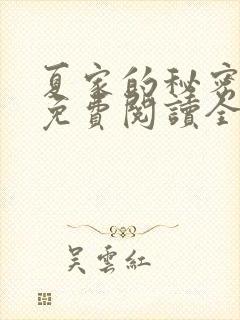 夏家的秘密
免費閱讀全
吳雲紅